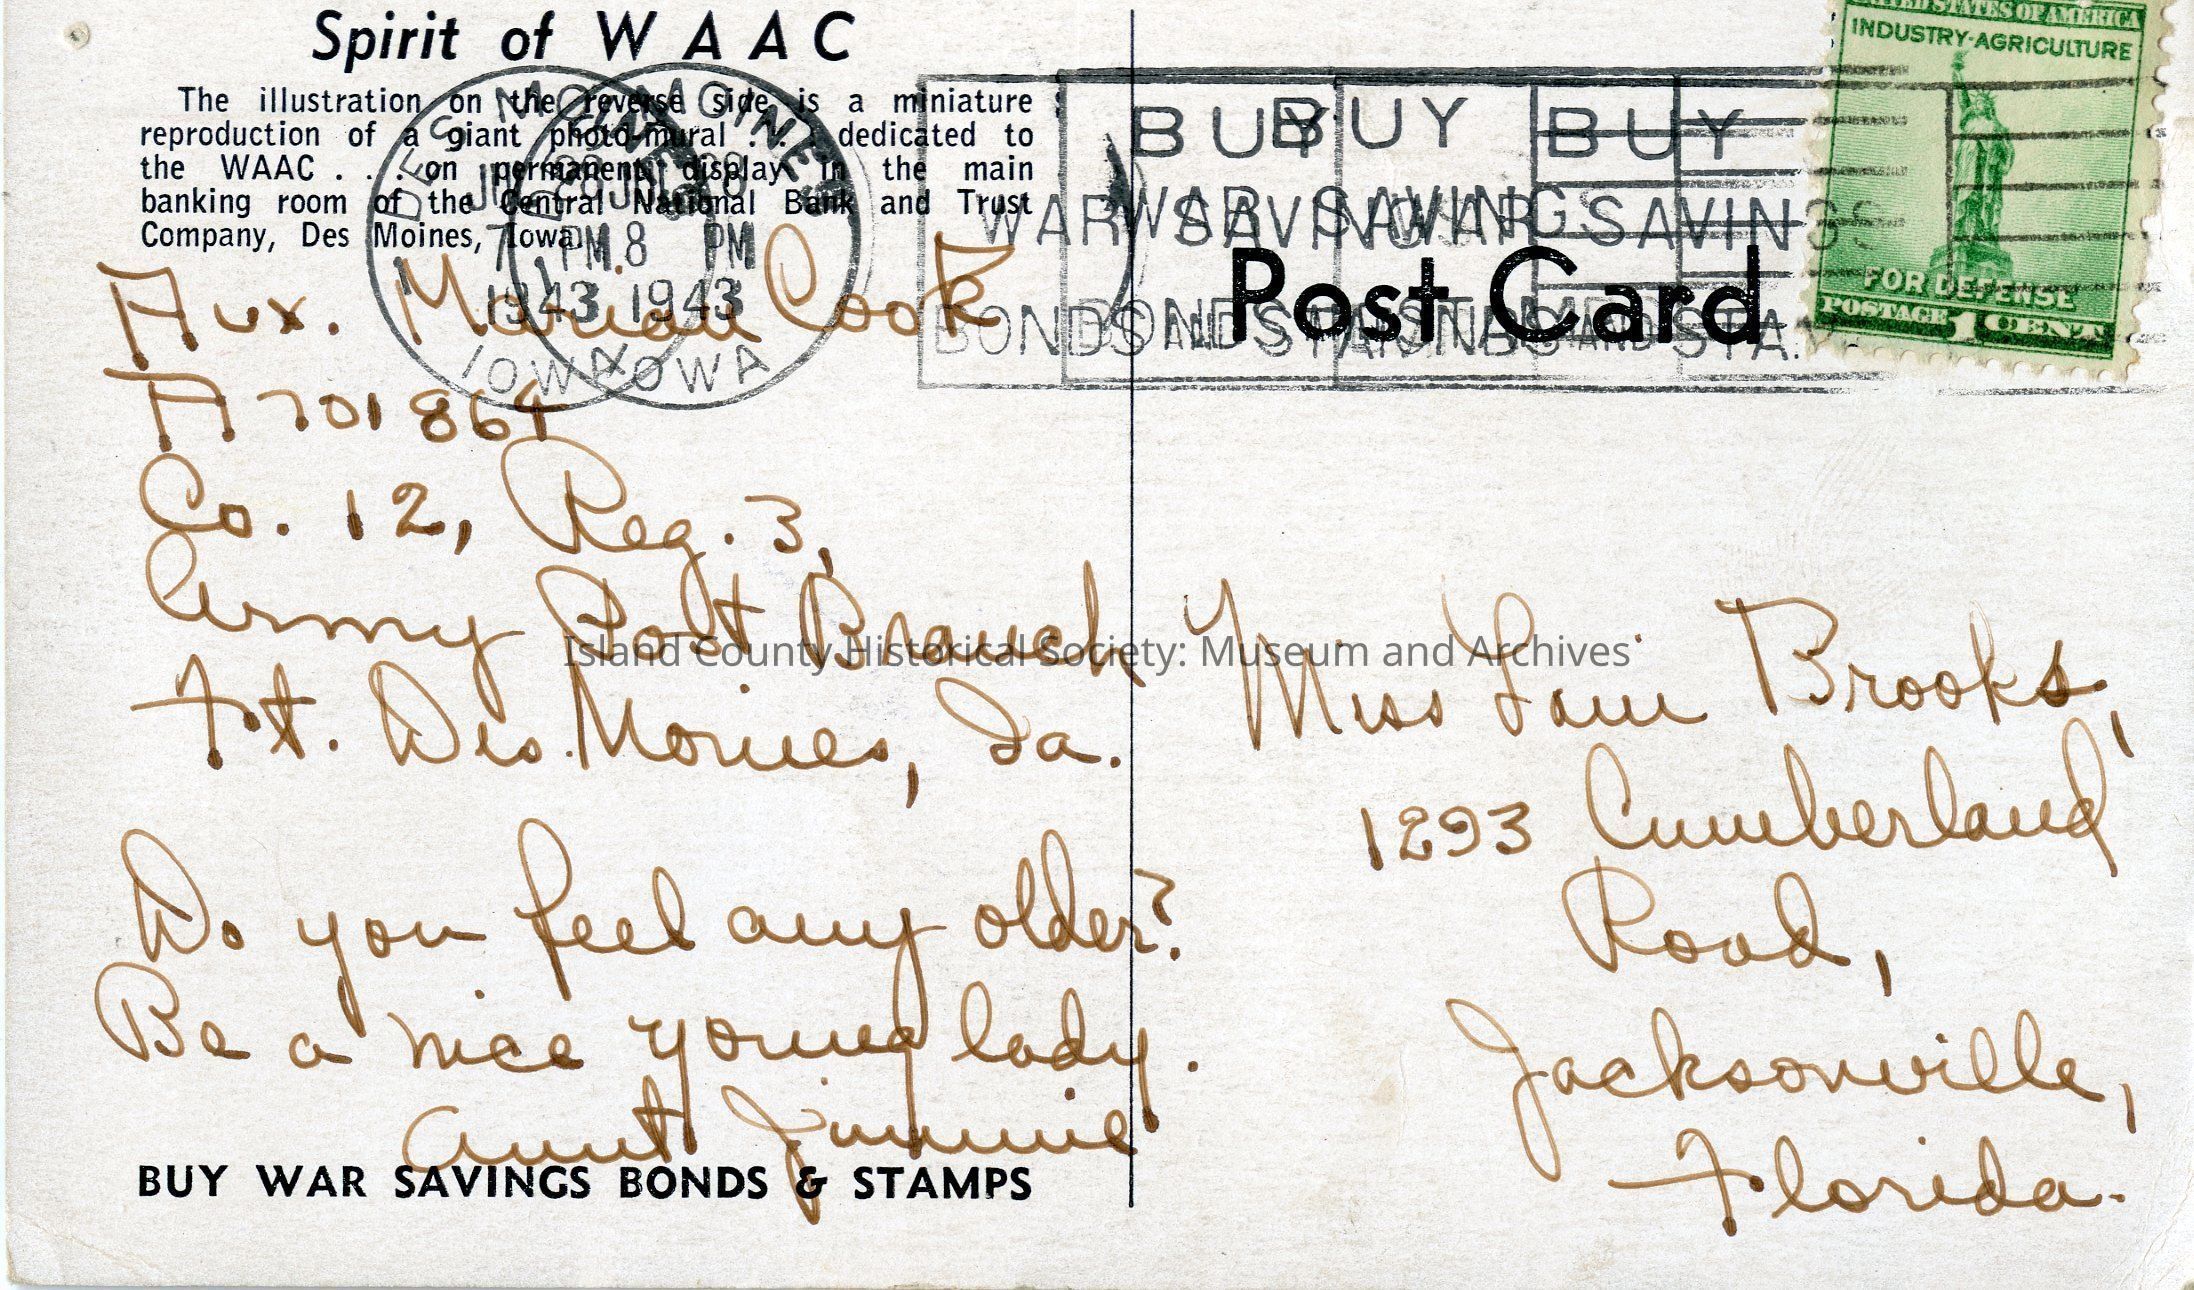 Spirit of WAAC
The illustration on the reverse side is a miniature
reproduction of a giant photo-mural . . . dedicated to
the WAAC . . . on permanent display in the main
banking room of the Central National Bank and Trust
Company, Des Moines, Iowa.
Aux. Marian Cook
A 701864
Co. 12, Reg. 3,
Army Post Branch
Ft. Des Moines, Ia.
Do you feel any older?
Be a nice young lady.
Aunt Jimmie
BUY WAR SAVINGS BONDS & STAMPS
DES MOINES
28
7 PM
1943
IOWA
DES MOINES
28
8 PM
1943
IOWA
BUY
WAR SAVINGS
BONDS AND STAMPS
BUY
WAR SAVINGS
BONDS AND STAMPS
Post Card
UNITED STATES OF AMERICA
INDUSTRY-AGRICULTURE
FOR DEFENSE
POSTAGE 1 CENT
Miss Brooks,
1293 Cumberland
Road,
Jacksonville,
Florida.
Island County Historical Society: Museum and Archives